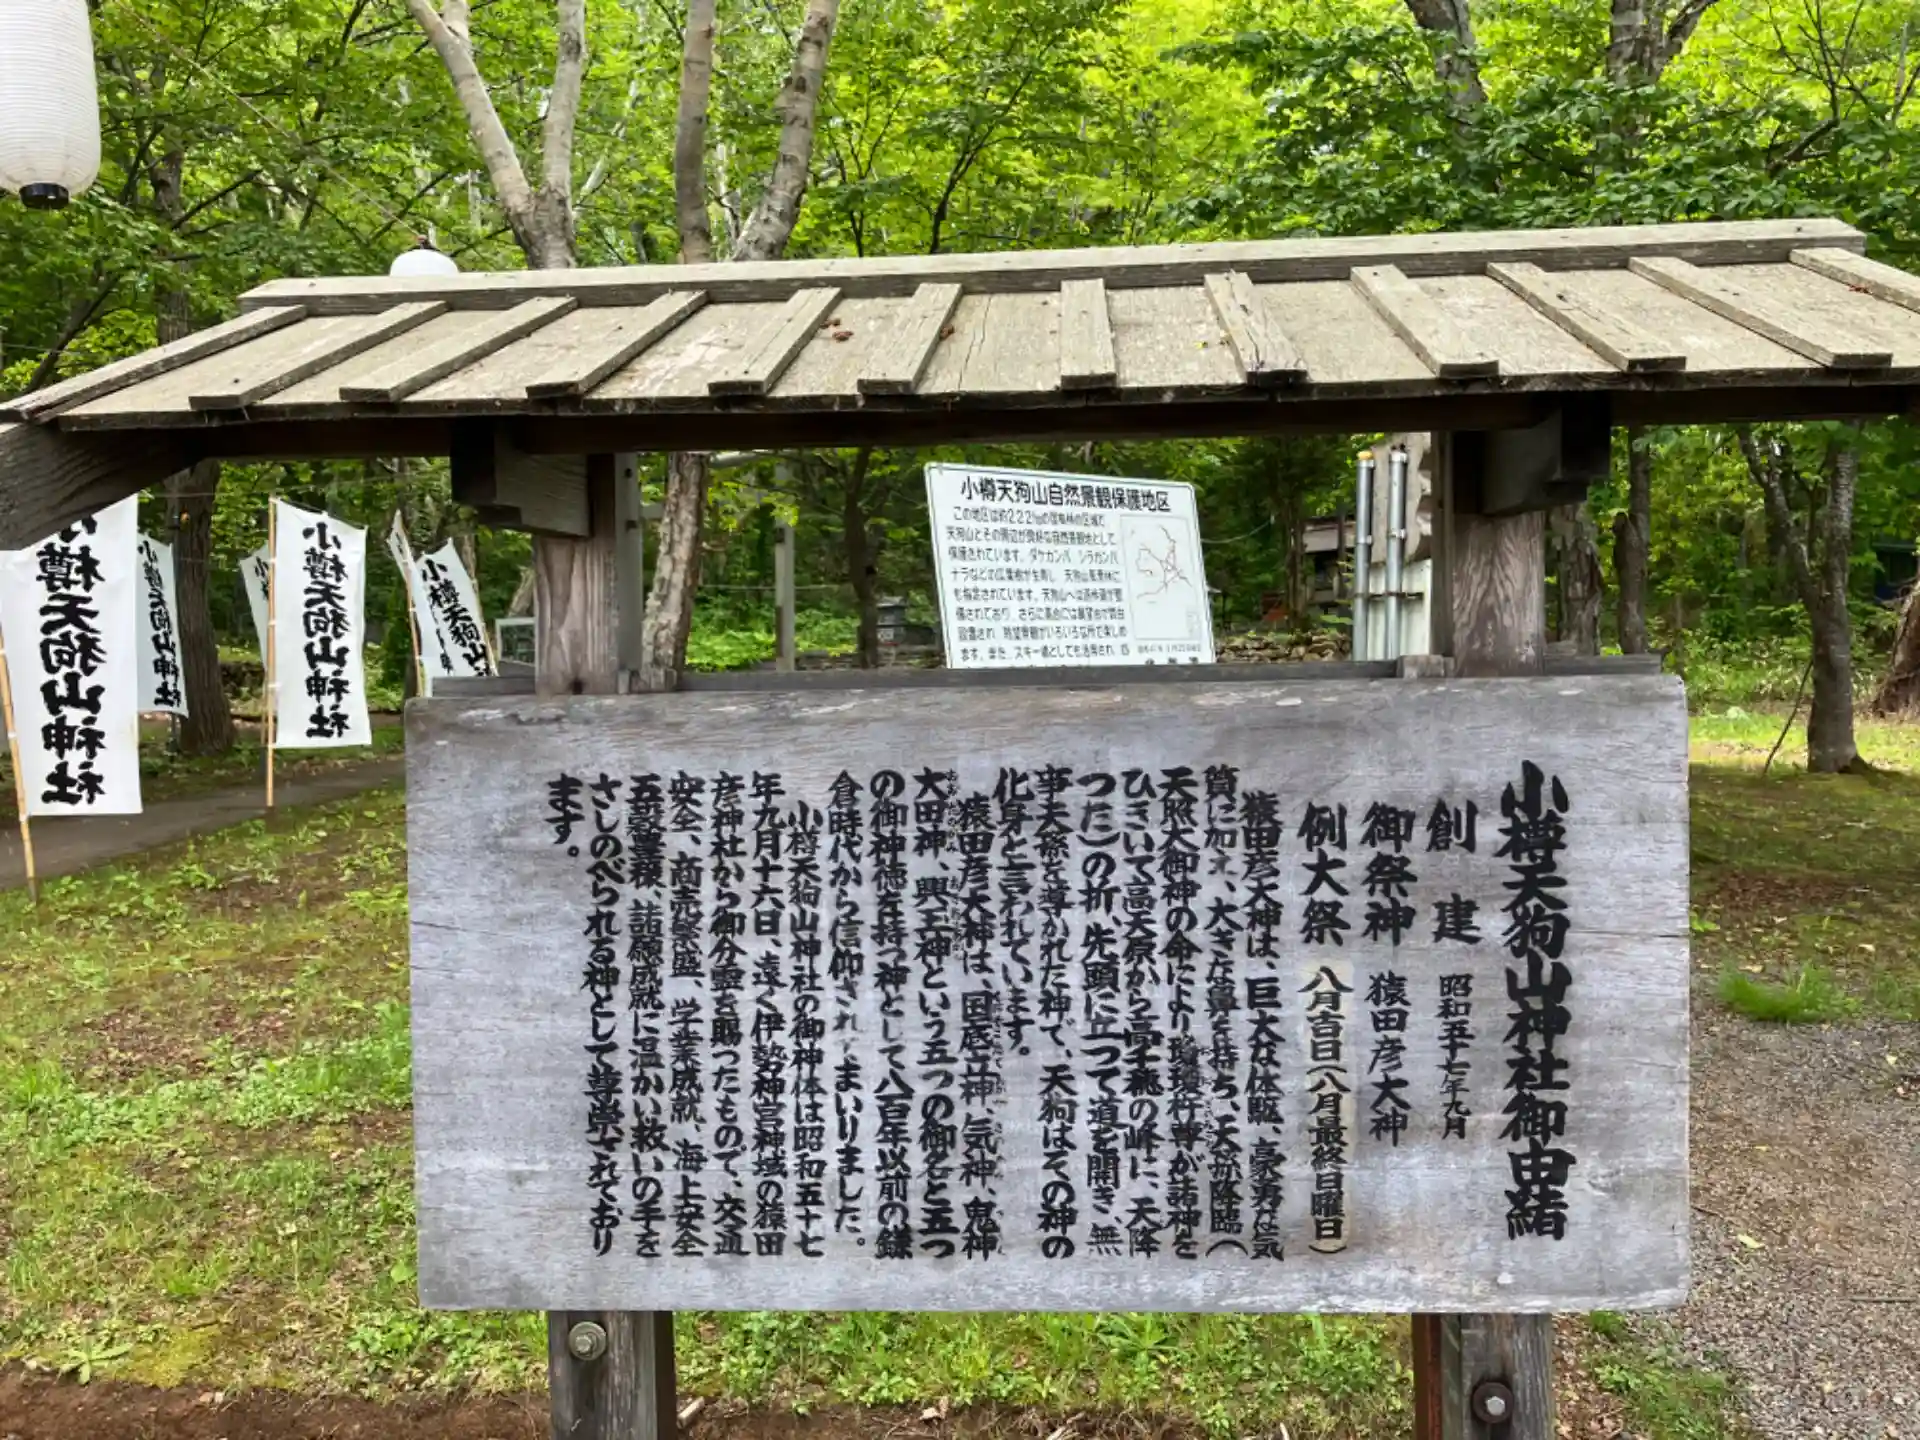 小樽天狗山神社御由緒
創建 昭和五十七年九月
御祭神 猿田彦大神
例大祭 八月吉日(八月最終日曜日)
猿田彦大神は、巨大な体駆、豪勇な気
質に加え、大きな鼻を持ち、天孫降臨(
天照大御神の命により瓊瓊杵尊が諸神を
ひきいて高天原から高千穂の峰に、天降
つた)の折、先頭に立つて道を開き、無
事天孫を導かれた神で、天狗はその神の
化身と言われています。
猿田彦大神は、国底立神、気神、鬼神
大田神、興玉神という五つの御名と五つ
の御神徳を持つ神として八百年以前の鎌
倉時代から信仰されてまいりました。
小樽天狗山神社の御神体は昭和五十七
年九月十六日、遠く伊勢神宮神域の猿田
彦神社から御分霊を賜つたもので、交通
安全、商売繁盛、学業成就、海上安全
五穀豊穣、諸願成就に温かい救いの手を
さしのべられる神として尊崇されており
ます。
小樽天狗山自然景観保護地区
この地区は約222haの
天狗山とその周辺が良好な自然景観地として
保護されています。ダケカンバ シラカンバ
ナラなどの広葉樹が生育し
も指定されています。天狗山へは
備されており、さらに
設置され
ます。また、スキー場としても
小樽天狗山神社
小樽天狗山神社
小樽天狗山神社
小樽天狗山神社